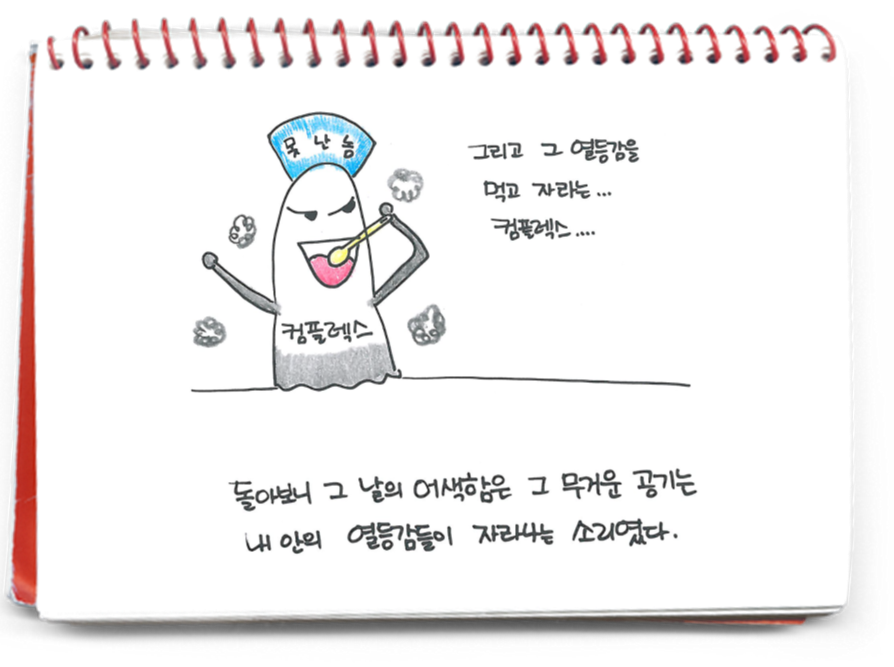 못난놈
그리고 그 열등감을
먹고 자라는...
컴플렉스....
컴플렉스
돌아보니 그 날의 어색함은 그 무거운 공기는
내 안의 열등감들이 자라나는 소리였다.